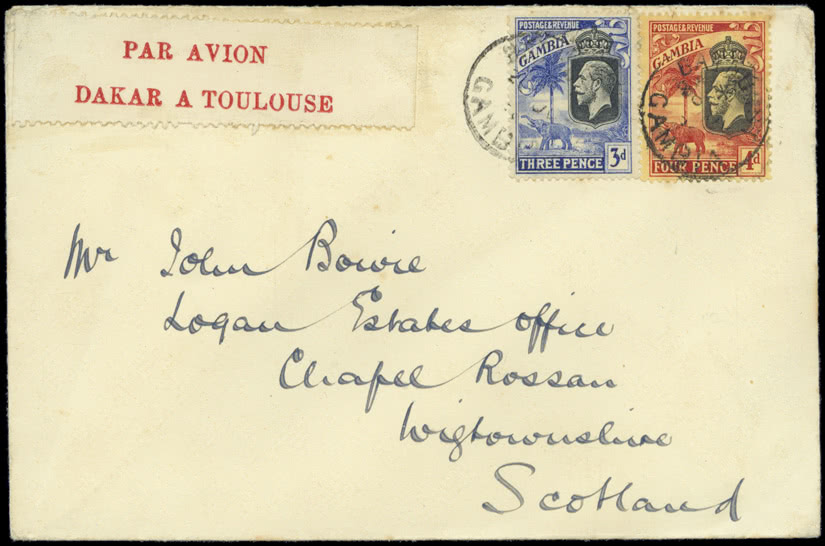 PAR AVION
DAKAR A TOULOUSE
POSTAGE & REVENUE
GAMBIA
THREE PENCE 3d
POSTAGE & REVENUE
GAMBIA
FOUR PENCE 4d
GAMB
GAMBIA
Mr John Bowie
Logan Estates Office
Chapel Rossan
Wigtownshire
Scotland